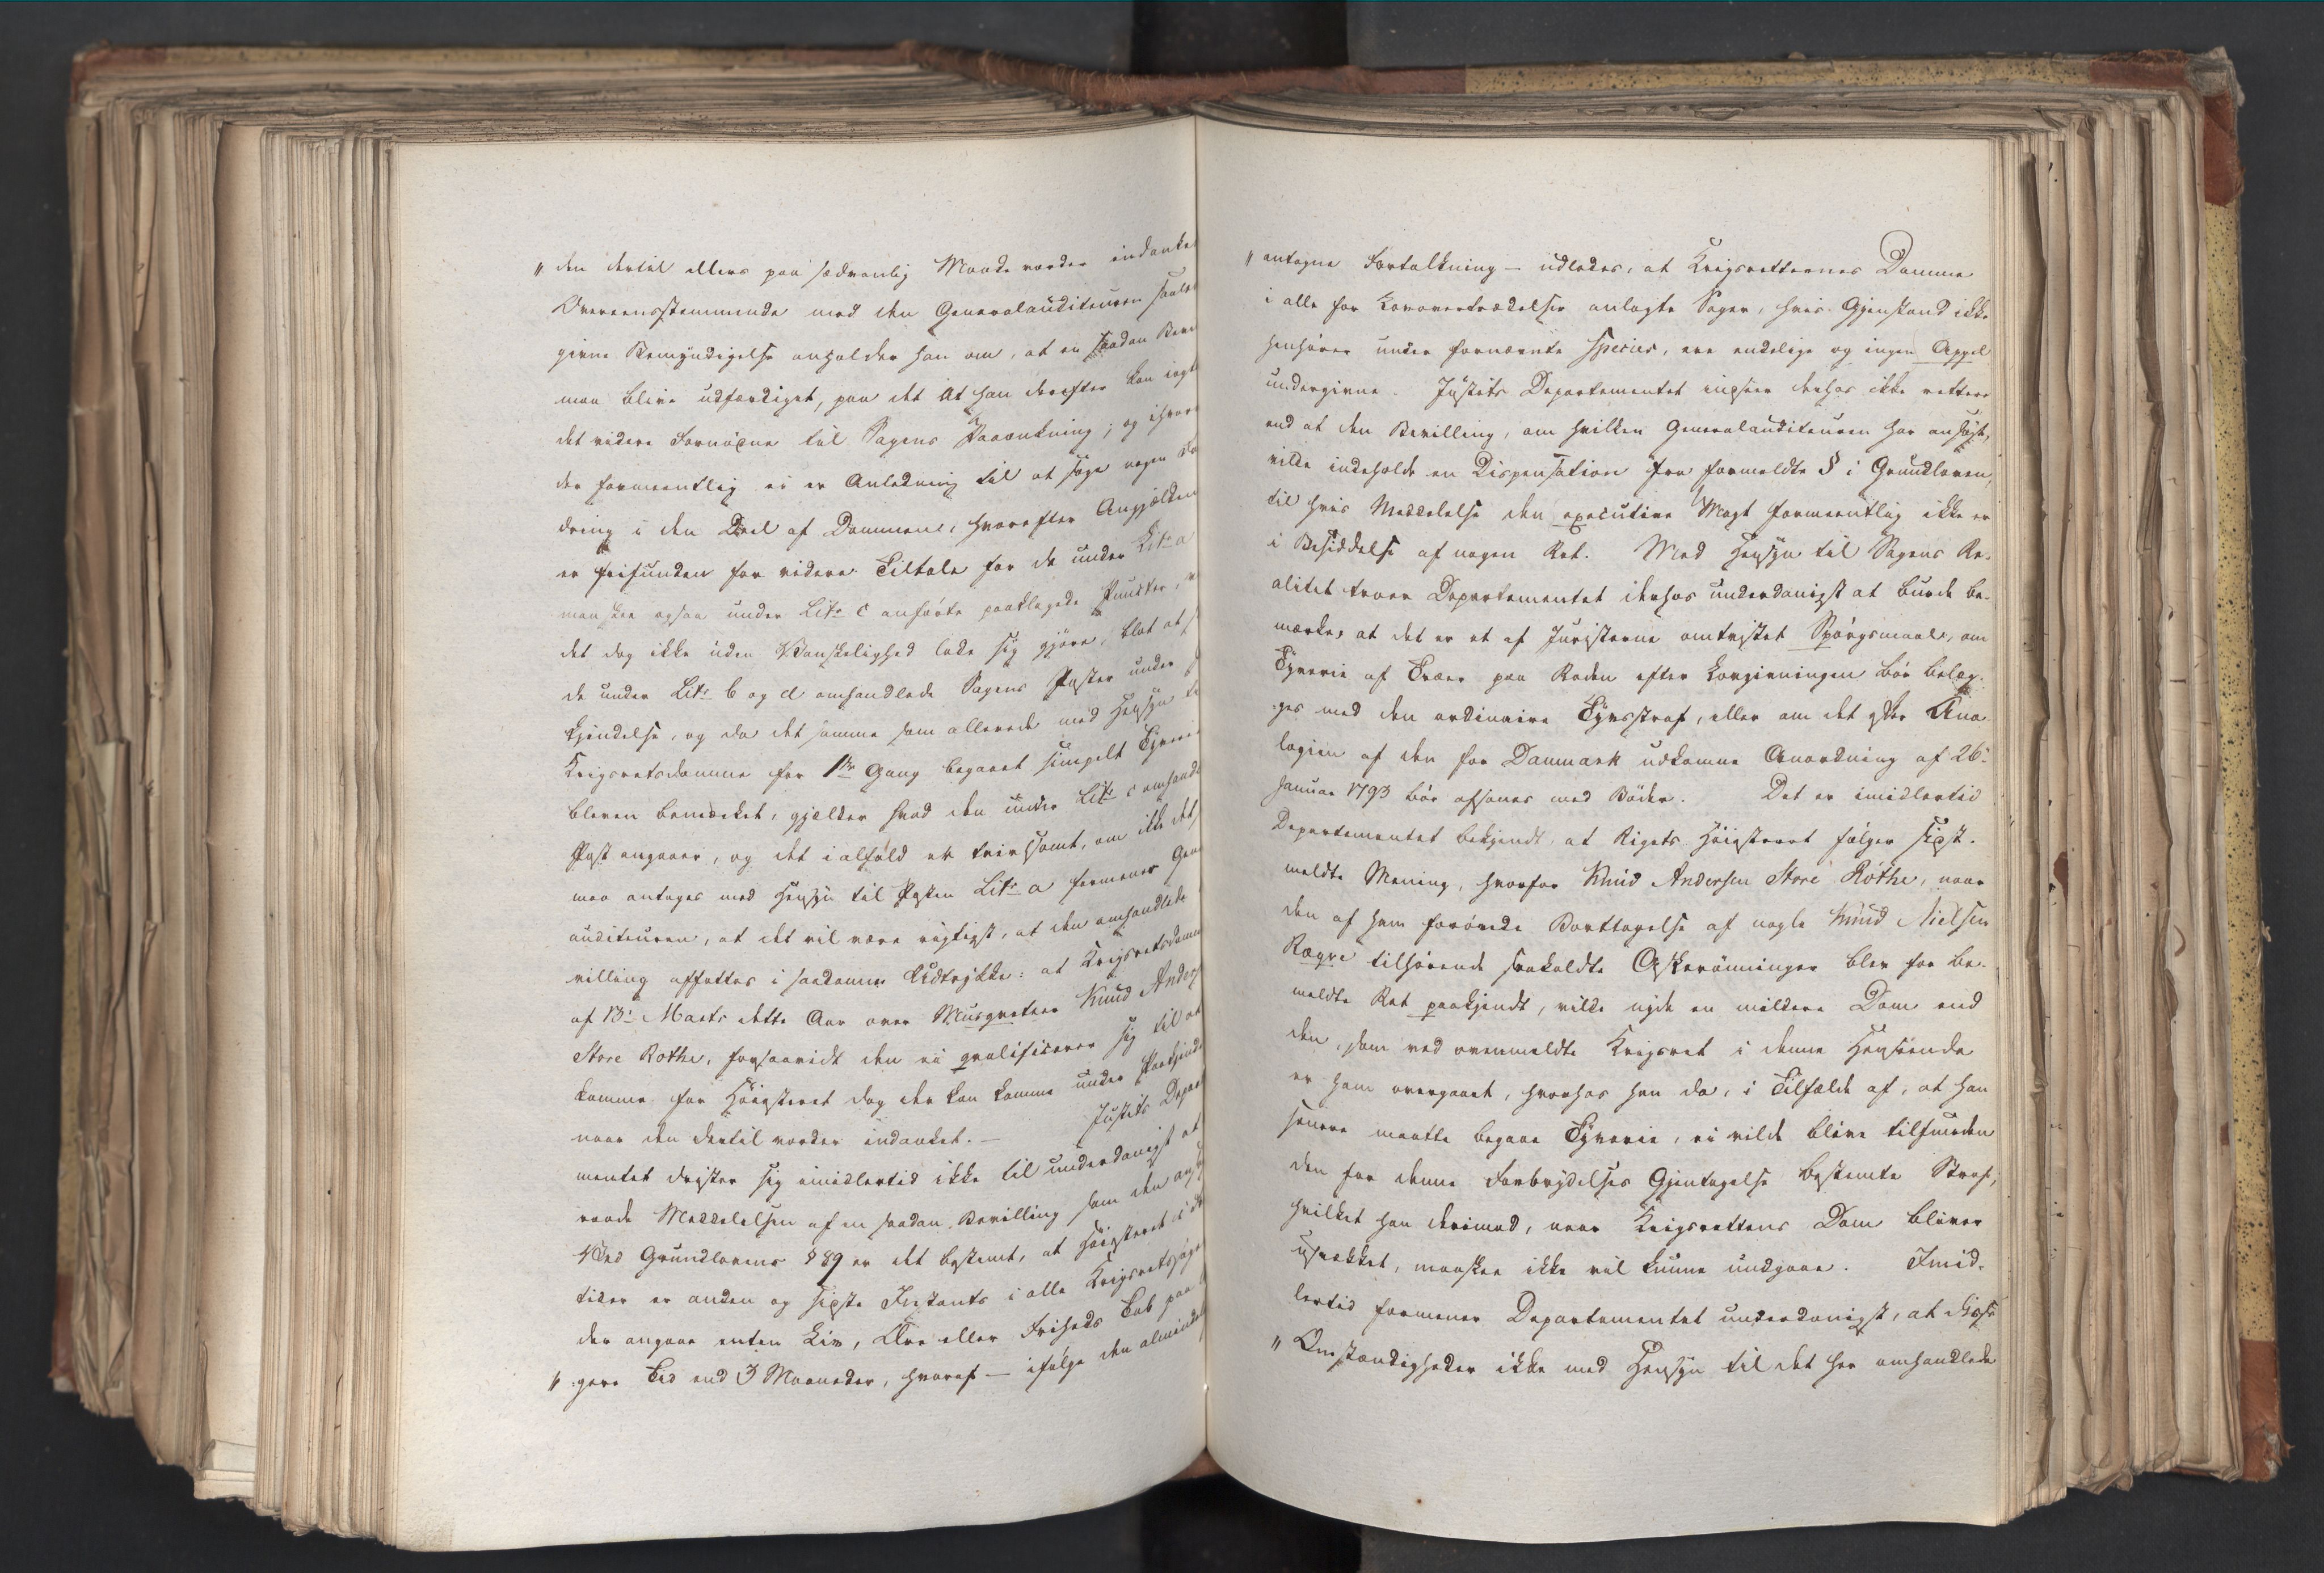 „ den dertil ellers paa sædvanlig Maade vorder indanket
Overeensstemmende med den Generalauditeuren saaledes
givne Bemyndigelse anholder han om, at en saadan Bevil
maa blive udfærdiget, paa det at han derefter kan iagt
det videre Fornødne til Sagens Paaankning; og ihvor
der formeentlig ei er Anledning til at søge nogen
dring i den Deel af Dommen, hvorefter Angjælden
er frifunden for videre Tiltale for de under Litr a
maaskee ogsaa under Litr c anførte paaklagede Puncter,
det dog ikke uden Vanskelighed lade sig gjøre, blot at
de under Litr b og d omhandlede Sagens Poster under
kjendelse, og da det samme som allerede med Hensyn
Krigsretsdomme for 1ste Gang begaaet simpelt Tyverie
bleven bemærket, gjælder hvad den under Litr c omhand
Post angaaer, og det ialfald er tvivlsomt, om ikke det
maa antages med Hensyn til Posten Litr a formener Gene
auditeuren, at det vil være rigtigst, at den omhandlede
villing affattes i saadanne Udtrykke: at Krigsretsdommen
af 13de Marts dette Aar over Musqueteer Knud Anders
Store Rothe, forsaavidt den ei qvalificerer sig til at
komme for Høiesteret dog der kan komme under Paakjende
naar den dertil vorder indanket. — Justits Depar
mentet drister sig imidlertid ikke til underdanigst at
raade Meddelelsen af en saadan Bevilling som den
Ved Grundlovens § 89 er det bestemt, at Høiesteret i
tider er anden og sidste Instants i alle Krigsretssager
der angaae enten Liv, Ære eller Friheds Tab paa
„ gere Tid end 3 Maaneder, hvoraf — ifølge den almindel
„ antagne Fortolkning — udledes, at Krigsretternes Domme
i alle for Lovovertrædelser anlagte Sager, hvis Gjenstand ikke
henhører under fornævnte Species, ere endelige og ingen Appel
undergivne. Justits Departementet indseer derhos ikke rettere
end at den Bevilling, om hvilken Generalauditeuren har ansøgt,
vilde indeholde en Dispensation fra formeldte § i Grundloven,
til hvis Meddelelse den executive Magt formeentlig ikke er
i Besiddelse af nogen Ret. Med Hensyn til Sagens Re-
alitet troer Departementet iøvrigt underdanigst at burde be-
mærke, at det er et af Juristerne omtvistet Spørgsmaal, om
Tyverie af Træer paa Roden efter Lovgivningen bør belæg-
ges med den ordinaire Tyvsstraf, eller om det efter Ana-
logien af den for Danmark udkomne Anordning af 26de
Januar 1793 bør afsones med Bøder. Det er imidlertid
Departementet bekjendt, at Rigets Høiesteret følger sidst-
meldte Mening, hvorfor Knud Andersen Store Rothe, naar
den af ham forøvede Borttagelse af nogle Knud Nielsen
Ræqve tilhørende saakaldte Askerønninger blev for be-
meldte Ret paakjendt, vilde nyde en mildere Dom end
den, som ved ovenmeldte Krigsret i denne Henseende
er ham overgaaet, hvorhos han da, i Tilfælde af, at han
senere maatte begaae Tyverie, ei vilde blive tilfunden
den for denne Forbrydelses Gjentagelse bestemte Straf,
hvilket han derimod, naar Krigsrettens Dom bliver
usvækket, maaskee ikke vil kunne undgaae. Imid-
lertid formener Departementet underdanigst, at disse
„ Omstændigheder ikke med Hensyn til det her omhandlede